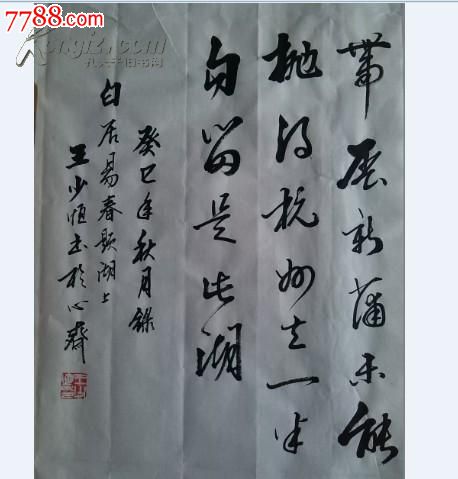 7788.com
孔夫子旧书网
帶展新蒲未能
抛得杭州去一半
勾留是此湖
癸巳年秋月錄
白居易春题湖上
王少恒书於心齋